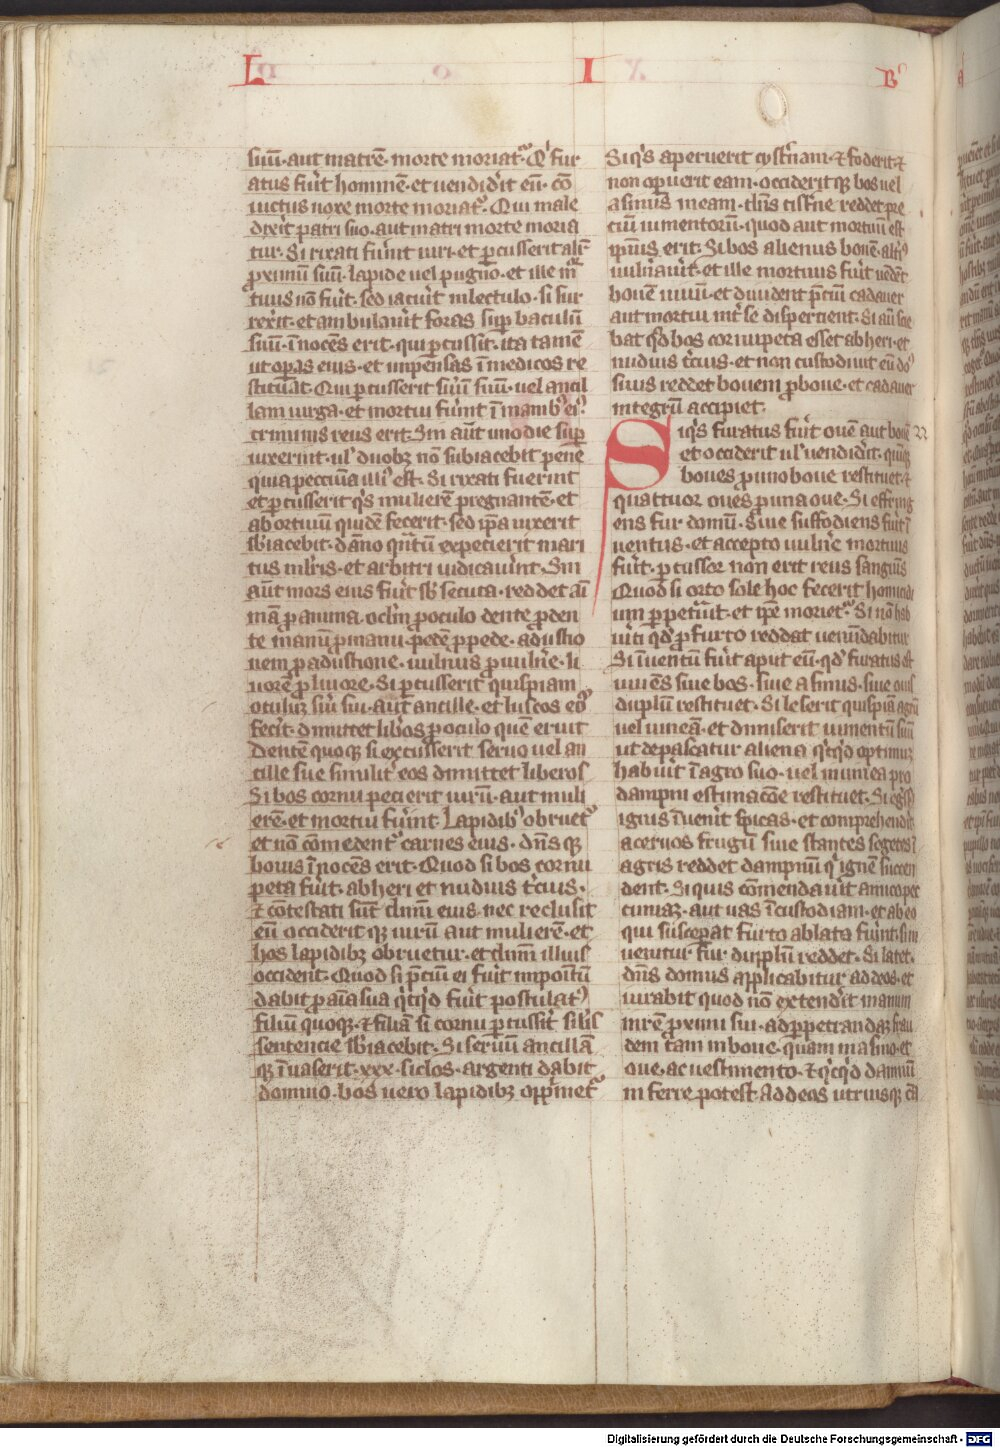 L I Bʼ
suū·aut matrē·morte moriat᷑·Qͥ fur
atus fuͥt hominē·et uendidͥt eū·cō
uictus noxe morte moriat᷑·Qui male
dixͥt patri suo·aut matri morte moria
tur·Si rixati fuͥnt uiri·et ꝑcusserit alť
ꝓximū suū·lapide uel pugno·et ille mͬ
tuus nō fuͥt·sed iacuͥt in lectulo·si sur
rexͥt·et ambulauͥt foras suꝑ baculū
suū·īnocēs erit·qui ꝑcussit·ita tamē
ut oꝑas eius·et inpensas ī medicos re
stituāt·Qui ꝑcusserit suū suū·uel ancil
lam uirga·et mortui fuͥnt ī manibꝰ eiꝰ
criminis reus erit·Sin aūt uno die suꝑ
uixerint·ul' duobꝫ nō subiacebit pene
quia peccunia illiꝰ est·Si rixati fuerint
et ꝑcusserit qͥs mulierē pregnantē·et
ab ortiuū quidē fecerit·sed ip̄a uixerit
sb'iacebit·dāno qn̄tū expecierit mari
tus mlr̄is·et arbitri iudicauͥnt·Sin
aūt mors eius fuͥt sb' secuta·reddet aī
mā ꝓ anima·oclm̄ ꝓ oculo dente ꝓ den
te manū ꝓ manu·pedē ꝓ pede·adustio
nem ꝓ adustione·uulnus ꝓ uulnͥe·li
uorē ꝓ liuore·Si ꝑcusserit quispiam
oculūꝫ suī sui·aūt ancille·et luscos eoꝰ
fecͥt·dimittet libͥos ꝓ oculo quē eruit
Dentē quoqꝫ si excusserit seruo uel an
cille sue similitͥ eos dimittet liberos
Si bos cornu pecierit uirū·aut muli
erē·et mortui fuͥint·Lapidibꝰ obruet᷑
et nō comedent᷑ carnes eius·dn̄s qꝫ
bouis īnocēs erit·Quod si bos cornu
peta fuͥt·ab heri et nudius tͥcius·
⁊ cōtestati sūt dn̄m eius·nec reclusit
eū occiderit qꝫ uirū aut mulierē·et
bos lapidibꝫ obruetur·et dn̄m illius
occident·Quod si pͥciū ei fuͥt inpoſtū
dabit ꝓ aīa sua qͥcqͥd fuͥt postulatꝰ
filiū quoqꝫ·⁊ filiā si cornu ꝑcussͥt silis
sentencie sb'iacebit·Si seruū ancillā
qꝫ īuaserit·xxx·siclos·argenti dabit
domino·bos uero lapidibꝫ oppͥmet᷑
Si qͥs aperuerit cystͥnam·⁊ foderit·⁊
non oꝑuerit eam·occiderit qꝫ bos uel
asinus in eam·dn̄s cistͥne reddet pre
ciū iumentorū·quod aut mortuū est
ipsius erit·Si bos alienus bouē·altͥiꝰ
uulnͥauͥt·et ille mortuus fuͥt uēdēt
bouē uiuū·et diuident pͥciū cadauer
aut mortui intͥ se dispertient·Si aū scie
bat qd' bos cornupeta esset ab heri·et
nudius tͥcius·et non custodiuit eū doꝰ
suus reddet bouem ꝓ boue·et cadauer
integrū accipiet·
Si qͥs furatus fuͥt ouē aut bouē 22
et occiderit ul' uendidͥt·quīqꝫ
boues ꝓ uno boue restituet·⁊
quattuor oues ꝓ una oue·Si effring
ens fur domū·Siue suffodiens fuͥt ī
uentus·et accepto uulnͥe mortuus
fuͥt·ꝑcussor non erit reus sanguīs
Quod si orto sole hoc fecerit homicidi
um ꝑpetͣuͥt·et ip̄e moriet᷑·Si nō hab
uͥit qd' ꝓ furto reddat uenūdabitur
Si īuentū fuͥt aput eū·qd' furatus est
uiuēs siue bos·siue asinus·siue ouis
duplū restituet·Si leserit quispiā agrū
uel uineā·et dimiserit iumentū suū
ut depascatur aliena qͥcqͥd optimuꝫ
habuͥt ī agro suo·uel in uinea pro
dampni estimacōe restituet·Si eg̃s
ignis īuenͥt spicas·et comprehendͥt
aceruos frugū siue stantes segetes ī
agris reddet dampnū qͥ ignē succen
dent·Si quis cōmendauͥt amico pec
cuniaꝫ·aut uas ī custodiam·et ab eo
qui susceꝑat furto ablata fuͥnt·si in
uenitur fur duplū reddet·Si latet·
dn̄s domus applicabitur ad deos·et
iurabit quod nō extendͥit manum
in rē ꝓximi sui·ad ꝑpetrandaꝫ frau
dem tͣam in boue·quam in asino·et
oue·ac uestimento·⁊ qͥcqͥd damnū
in ferre potest Ad deos utriusqꝫ cā
Digitalisierung gefördert durch die Deutsche Forschungsgemeinschaft - DFG